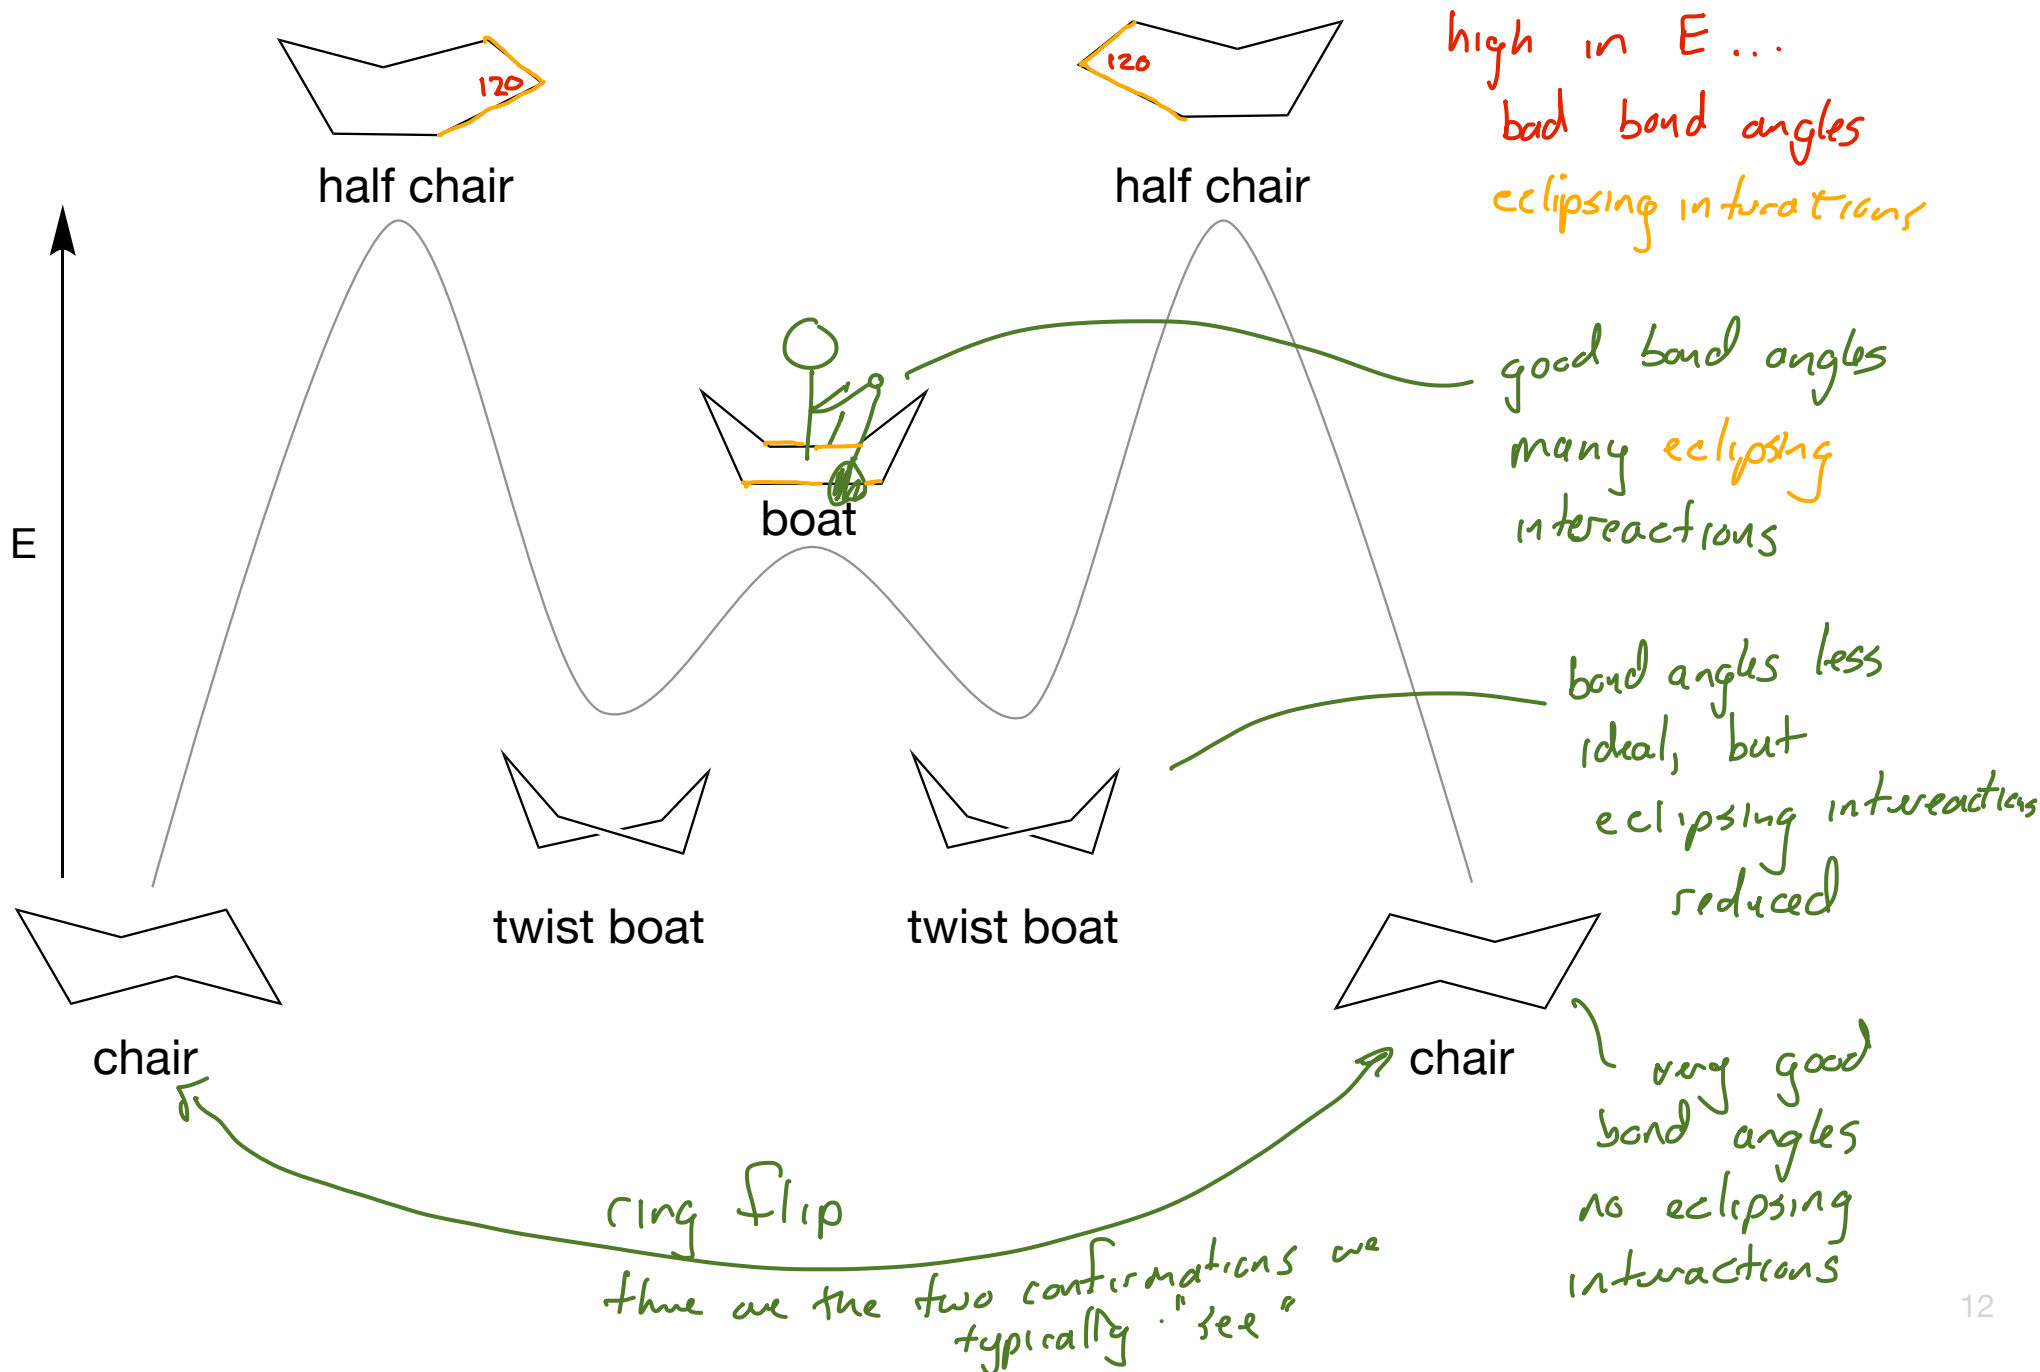 120
half chair
120
half chair
high in E ...
bad bond angles
eclipsing inturations
E
boat
good bond angles
many eclipsing
intereactions
bond angles less
ideal, but
eclipsing intereactions
reduced
twist boat
twist boat
chair
chair
very good
bond angles
no eclipsing
interactions
ring flip
these are the two confirmations we
typically "see"
12